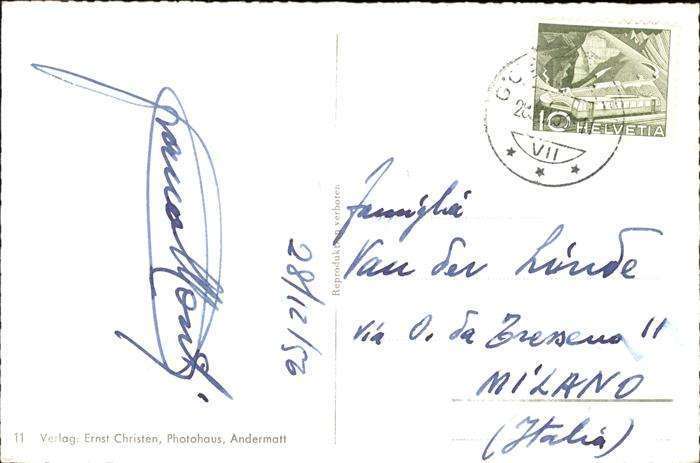 28/12/56
11 Verlag: Ernst Christen, Photohaus, Andermatt
Reproduktion verboten
10 HELVETIA
VII
Famiglia
Van der Linde
Via O. da Tresseno 11
MILANO
(Italia)